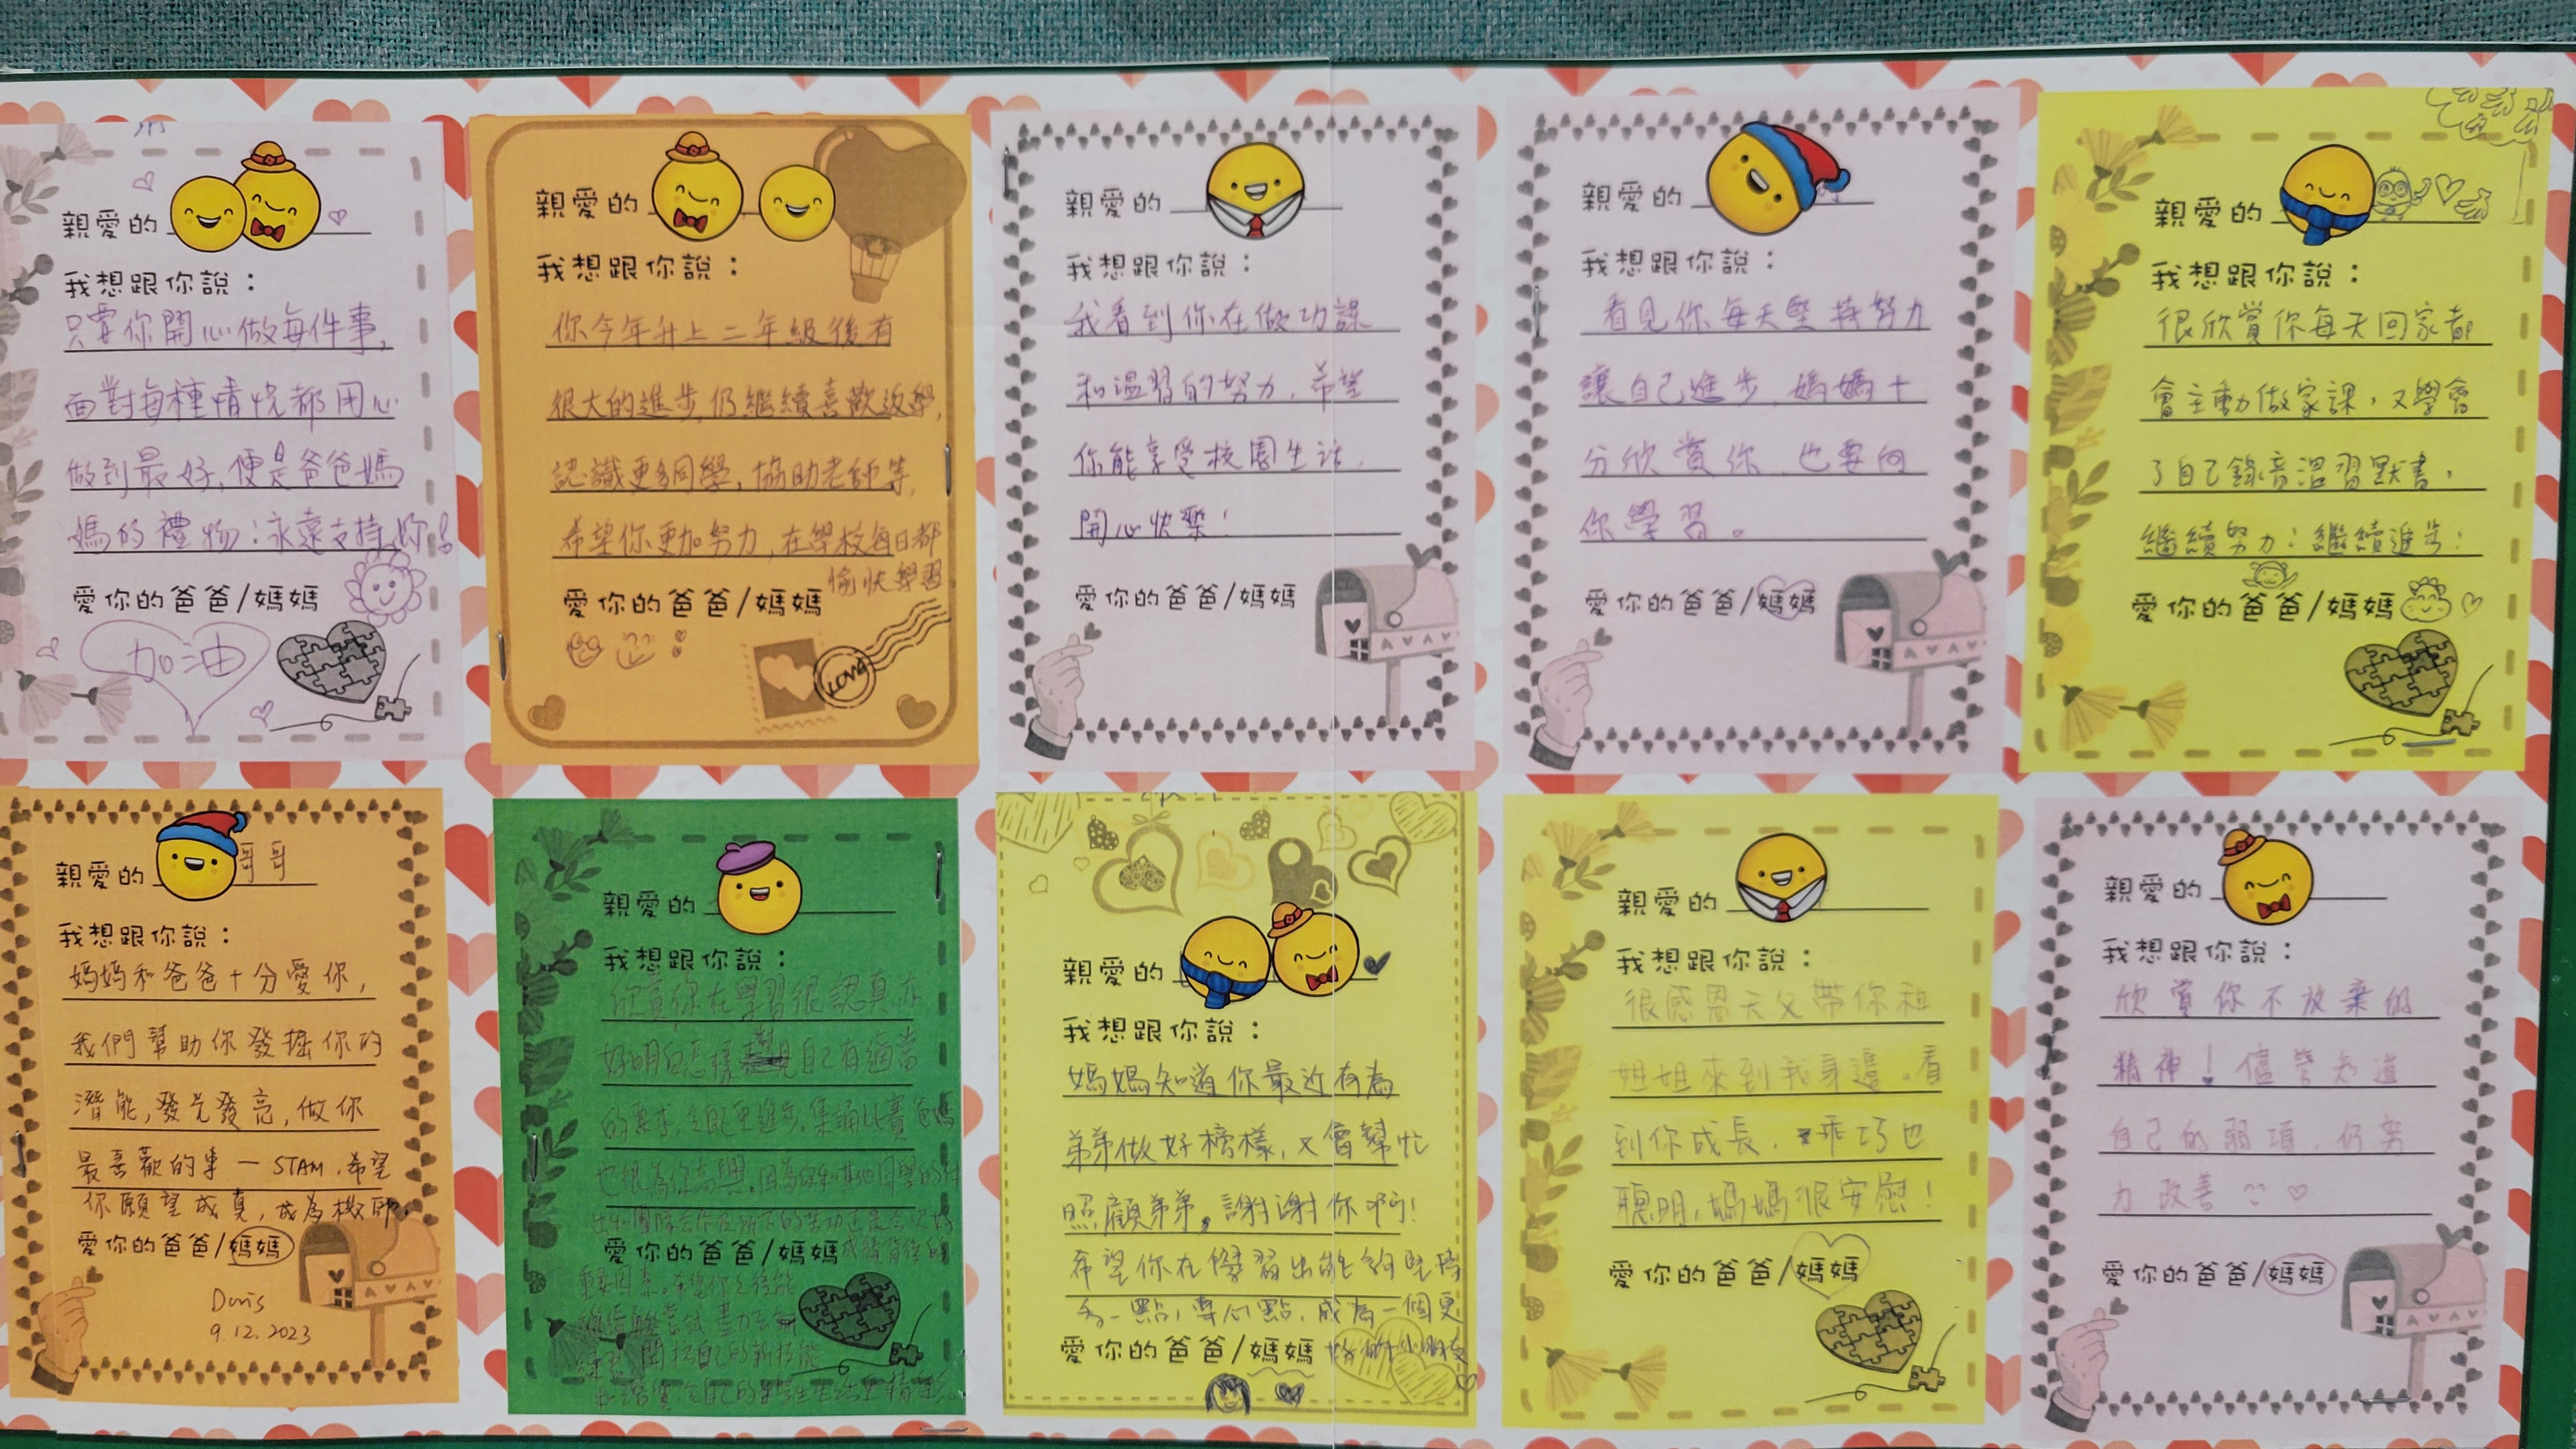 親愛的
我想跟你說：
只要你開心做每件事,
面對每種情況都用心
做到最好,便是爸爸媽
媽的禮物：永遠支持你！
愛你的爸爸/媽媽
加油
親愛的
我想跟你說：
你今年升上二年級後有
很大的進步,仍繼續喜歡返學,
認識更多同學,協助老師等,
希望你更加努力,在學校每日都
愉快學習。
愛你的爸爸/媽媽
LOVE
親愛的
我想跟你說：
我看到你在做功課
和溫習的努力,希望
你能享受校園生活,
開心快樂！
愛你的爸爸/媽媽
親愛的
我想跟你說：
看見你每天堅持努力
讓自己進步,媽媽十
分欣賞你,也要向
你學習。
愛你的爸爸/媽媽
親愛的
我想跟你說：
很欣賞你每天回家都
會主動做家課，又學會
了自己錄音溫習默書，
繼續努力！繼續進步！
愛你的爸爸/媽媽
親愛的 哥哥
我想跟你說：
媽媽和爸爸十分愛你,
我們幫助你發掘你的
潛能,發光發亮,做你
最喜歡的事一STAM.希望
你願望成真,成為機師.
愛你的爸爸/媽媽
Doris
9.12.2023
親愛的
我想跟你說：
欣賞你在學習很認真亦
好明白怎樣對自己有適當
的要求,令自己更進步.集誦比賽爸媽
也很為你高興.因為你和其他同學的付
愛你的爸爸/媽媽
重要因素.希望你之後能
親愛的
我想跟你說：
媽媽知道你最近有為
弟弟做好榜樣,又會幫忙
照顧弟弟,謝謝你啊!
希望你在學習出能夠堅持
多一點,專心點,成為一個更
好的小朋友
愛你的爸爸/媽媽
親愛的
我想跟你說：
很感恩天父帶你和
姐姐來到我身邊.看
到你成長,乖巧也
聰明,媽媽很安慰！
愛你的爸爸/媽媽
親愛的
我想跟你說：
欣賞你不放棄的
精神！儘管知道
自己的弱項,仍努
力改善
愛你的爸爸/媽媽